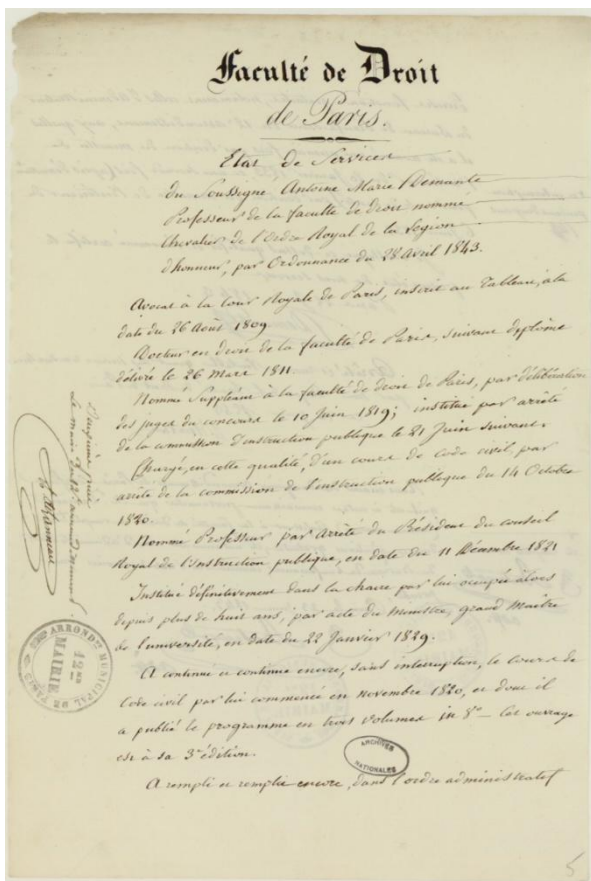 Faculté de Droit
de Paris.
Etat de Services
du Soussigné Antoine Marie Demante
Professeur de la faculté de droit nommé
Chevalier de l'Ordre Royal de la Légion
d'honneur, par Ordonnance du 28 Avril 1843.
Avocat à la Cour Royale de Paris, inscrit au Tableau, à la
date du 26 Août 1809.
Docteur en droit de la faculté de Paris, suivant diplôme
délivré le 26 Mars 1811
Nommé Suppléant à la faculté de droit de Paris, par délibération
des juges du concours le 10 Juin 1819; institué par arrêté
de la commission d'instruction publique le 21 Juin suivant.
Chargé, en cette qualité, d'un cours de code civil, par
arrêté de la commission de l'instruction publique du 14 Octobre
1820.
Nommé Professeur par Arrêté du Président du conseil
Royal de l'Instruction publique, en date du 11 Décembre 1821
Institué définitivement dans la chaire par lui occupée alors
depuis plus de huit ans, par acte du Ministre, grand Maître
de l'université, en date du 22 Janvier 1829.
A continué et continue encore, sans interruption, le cours de
Code civil par lui commencé en novembre 1820, et dont il
a publié le programme en trois volumes in 8° — Cet ouvrage
est à sa 3e édition.
A rempli et remplit encore, dans l'ordre administratif
ARCHIVES
NATIONALES
12me ARRONDt MUNICIPAL DE PARIS
MAIRIE
12me
5